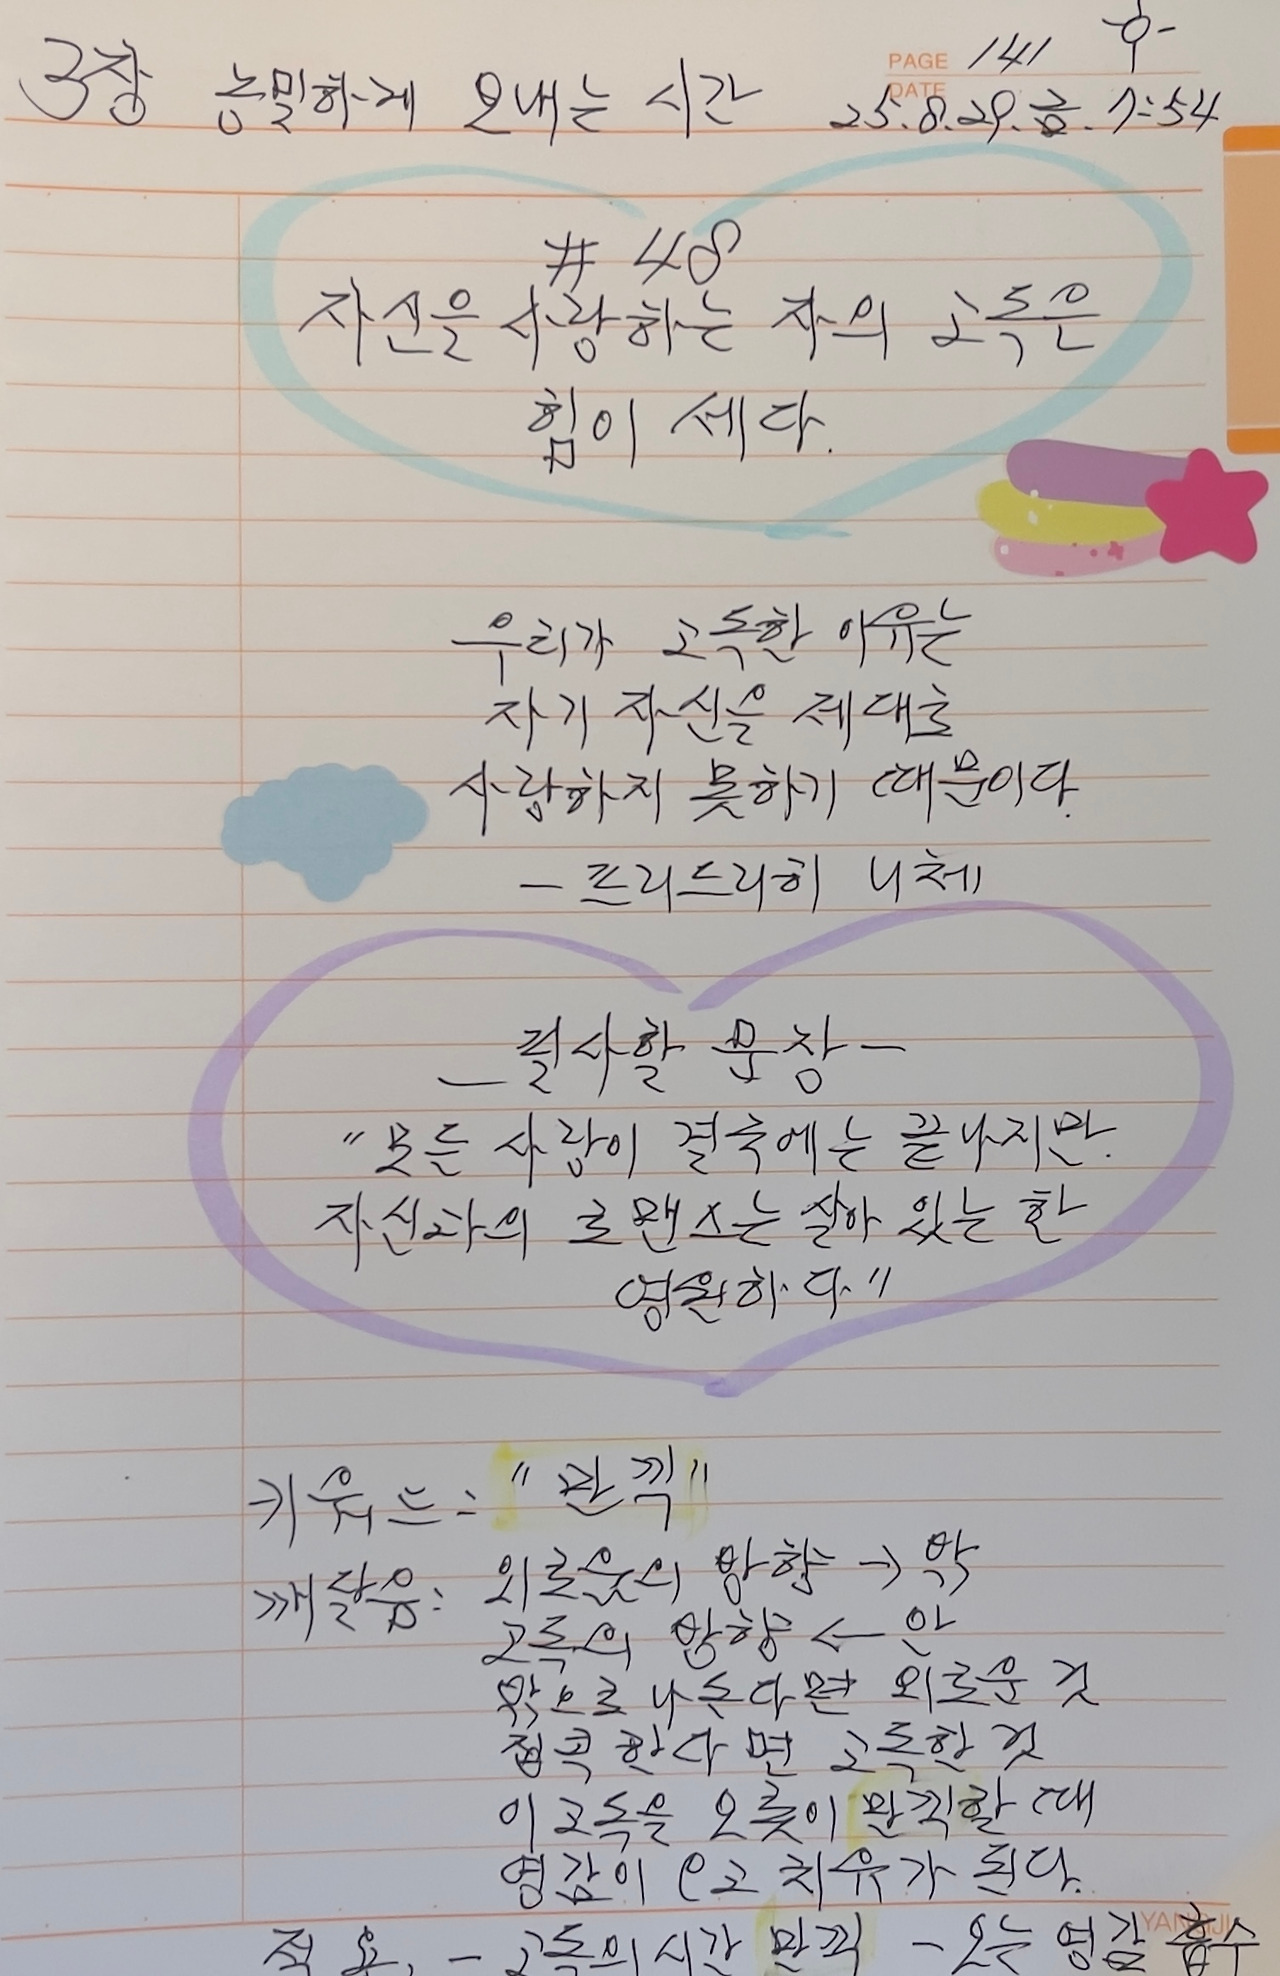 PAGE 141
3장 농밀하게 보내는 시간
DATE 25.8.29.금. 7:54
# 48
자신을 사랑하는 자의 고독은
힘이 세다.
우리가 고독한 이유는
자기 자신을 제대로
사랑하지 못하기 때문이다.
- 프리드리히 니체
- 필사할 문장 -
"모든 사랑이 결국에는 끝나지만
자신과의 로맨스는 살아 있는 한
영원하다"
키워드: "만끽"
깨달음: 외로움의 방향 → 밖
고독의 방향 ← 안
밖으로 나돈다면 외로운 것
접목한다면 고독한 것
이 고독을 오롯이 만끽할 때
영감이 오고 치유가 된다.
YANGJI
적용. - 고독의 시간 만끽 - 오는 영감 흡수